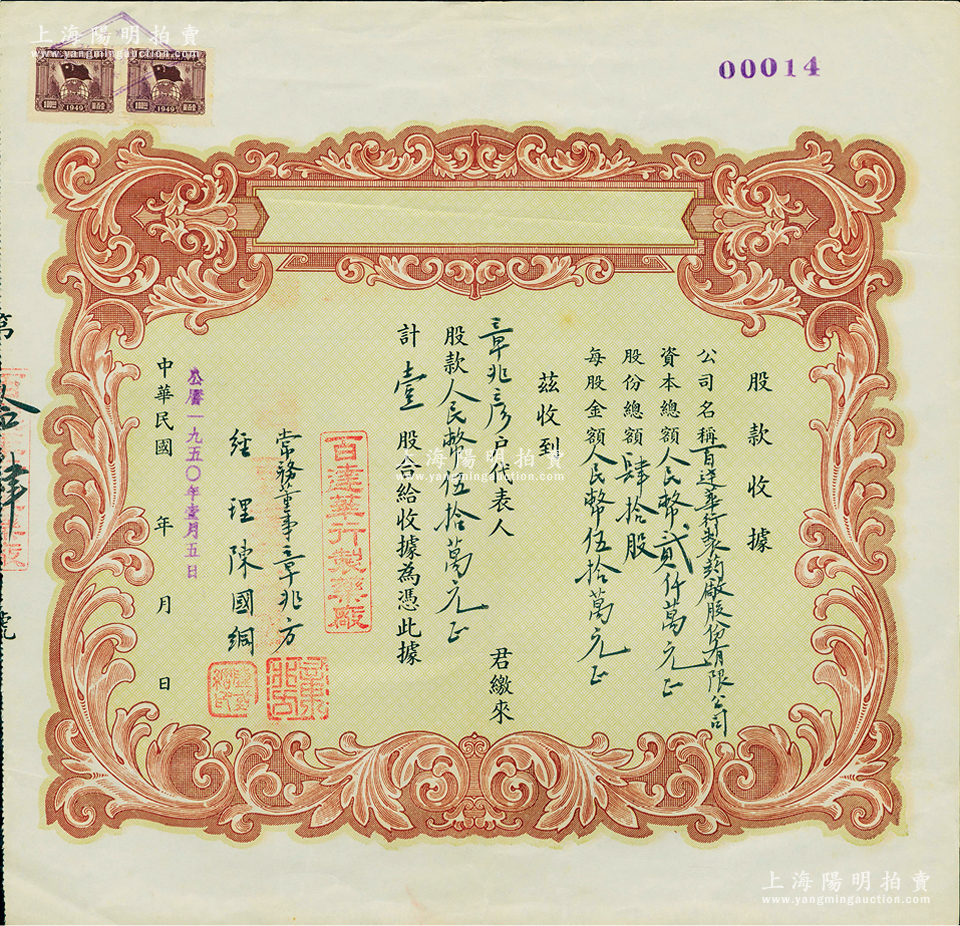 上海陽明拍賣
www.yangmingauction.com
00014
1949
1949
股款收據
公司名稱百達華行製葯廠股份有限公司
資本總額人民幣貳仟萬元正
股份總額肆拾股
每股金額人民幣伍拾萬元正
茲收到
章兆彥戶代表人 君繳來
股款人民幣伍拾萬元正
計壹股合給收據為憑此據
百達華行製藥廠
常務董事章兆方
經理陳國綱
公曆一九五〇年壹月五日
中華民國 年 月 日
第拾肆號
上海陽明拍賣
www.yangmingauction.com
上海陽明拍賣
www.yangmingauction.com